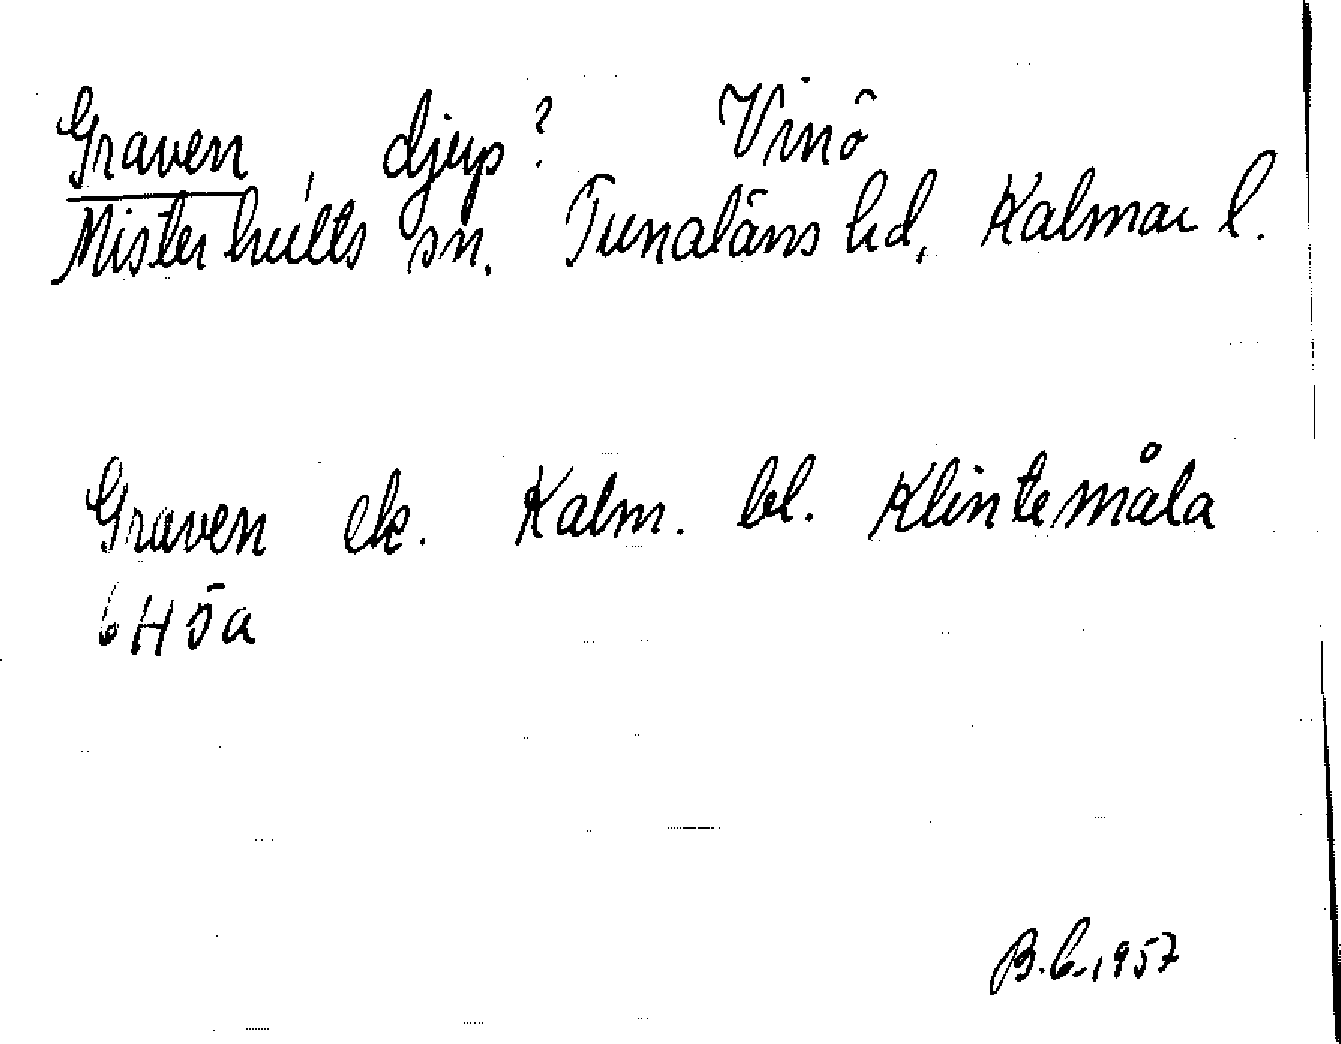 Graven, djup? Vinö
Misterhults sn. Tunaläns hd, Kalmar l.
Graven ek. Kalm. bl. Klintemåla
6H öa
B.C. 1957